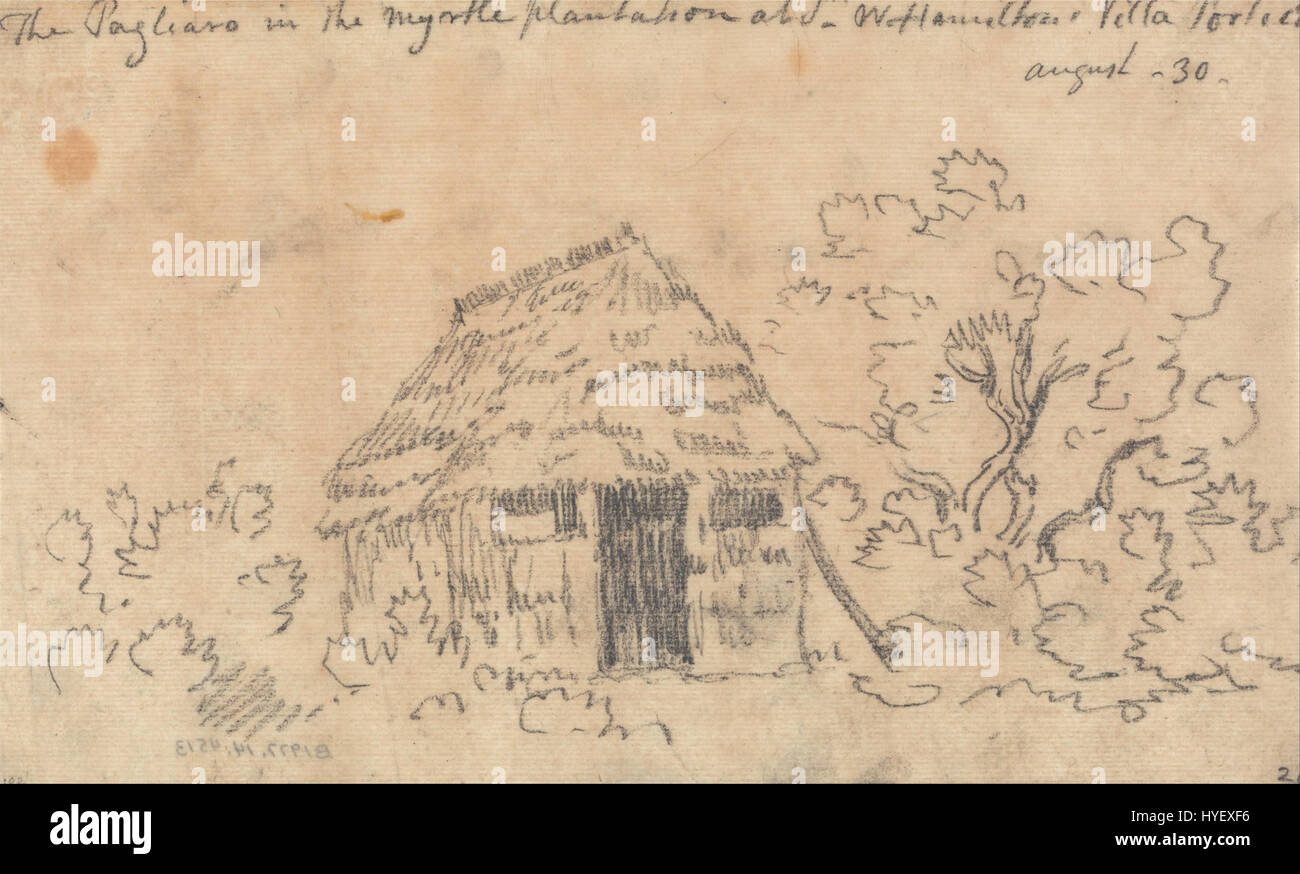 The Pagliaro in the myrtle plantation at Sr W. Hamilton's Villa Portici
august - 30 -
alamy
alamy
alamy
a a a a
B1977.14.4513
alamy
Image ID: HYEXF6
www.alamy.com